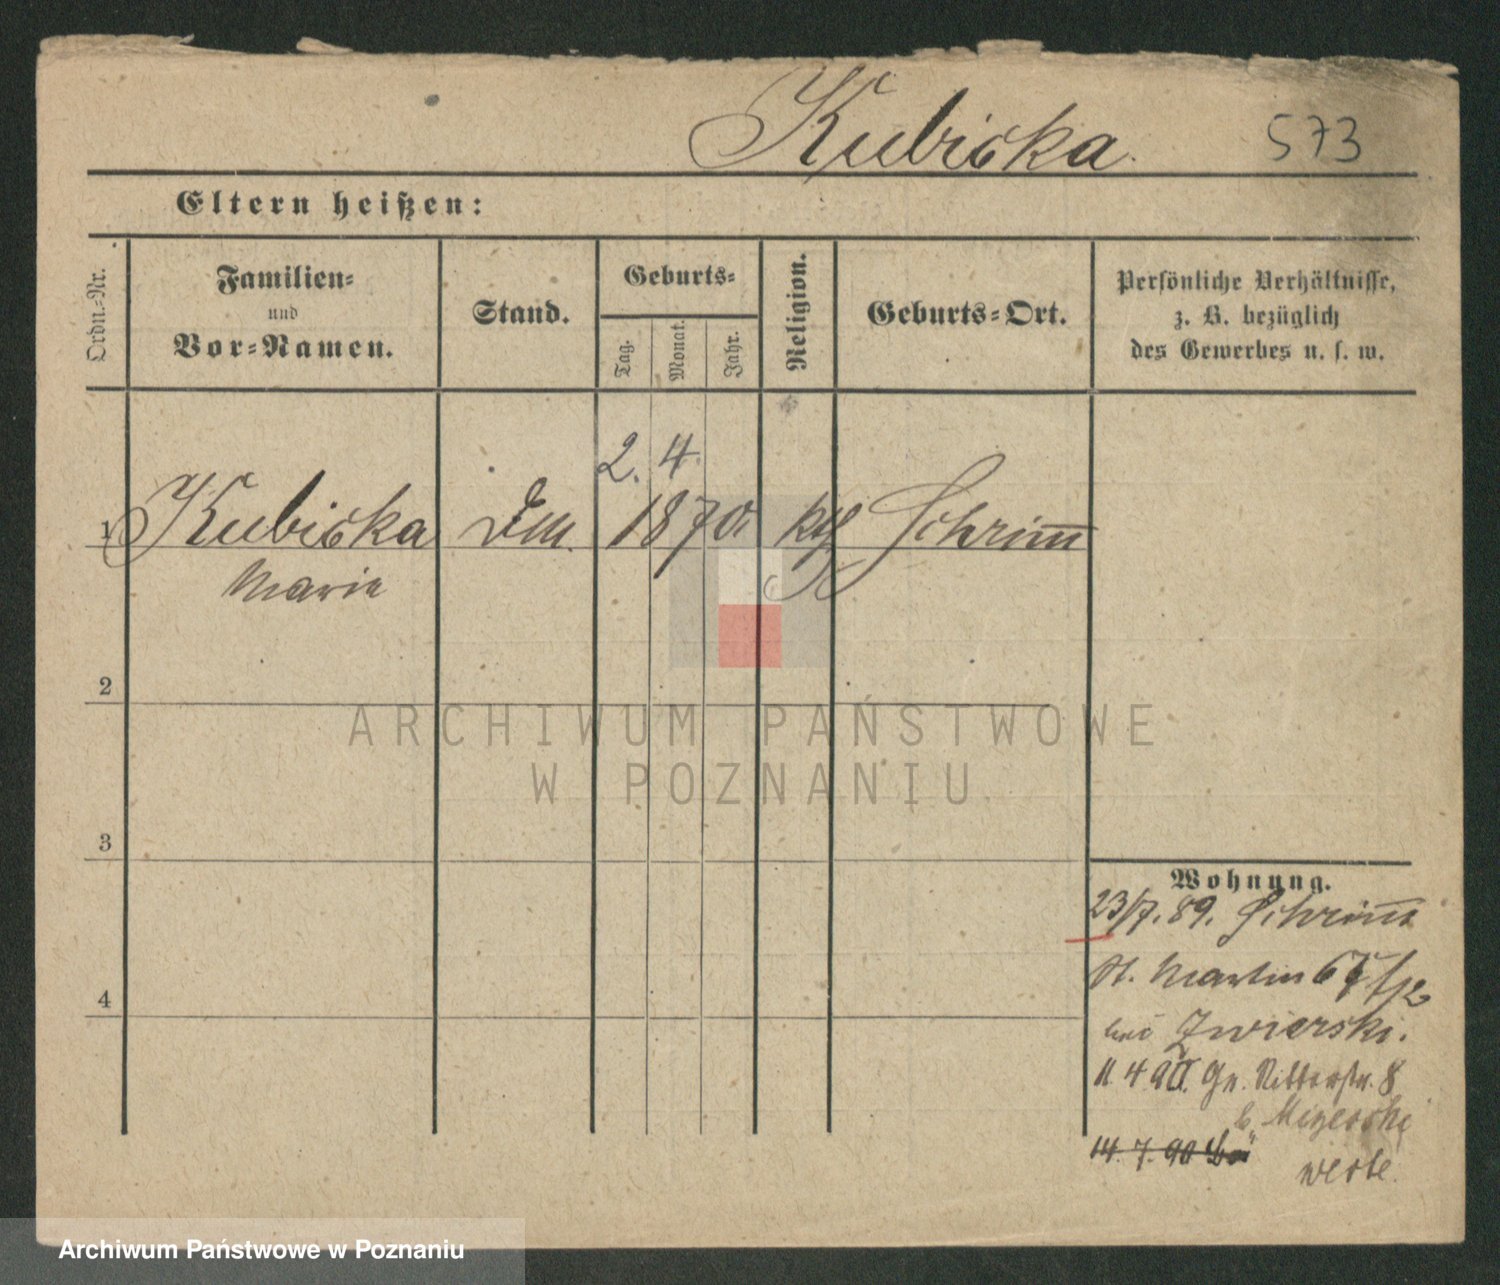 Kubicka. 573
Eltern heißen:
Ordn.-Nr.
Familien-
und
Vor-Namen.
Stand.
Geburts-
Tag.
Monat.
Jahr.
Religion.
Geburts-Ort.
Persönliche Verhältnisse,
z. B. bezüglich
des Gewerbes u. s. w.
2. 4.
1 Kubicka 1870. kth Schrimm
Marie
2
ARCHIWUM PAŃSTWOWE
W POZNANIU
3
Wohnung.
23/7. 89. Schrimm
St. Martin
4
bei Zwierski.
11 4 90. Gr. Ritterstr. 8
b. Mizerski
14. 7. 90
Archiwum Państwowe w Poznaniu